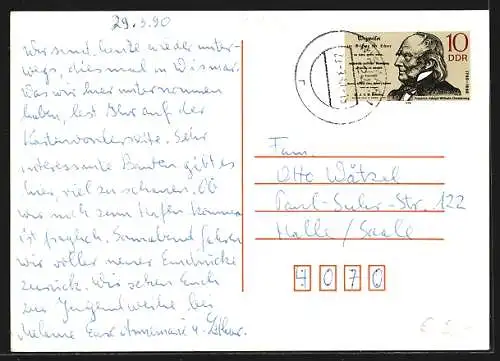 29.3.90
Wir sind heute wieder unter-
wegs, diesmal in Wismar.
Was wir hier unternommen
haben, lest Ihr auf der
Kartenvorderseite. Sehr
interessante Bauten gibt es
hier, viel zu schauen. Ob
wir noch zum Hafen kommen
ist fraglich. Sonnabend fahren
wir voller neuer Eindrücke
zurück. Wir sehen Euch
zur Jugendweihe bei
Eure Annemarie u.
Wegweiser
10
DDR
Friedrich Adolph Wilhelm Diesterweg
1790-1866
Fam.
Otto Wätzel
Paul-Suhr-Str. 122
Halle/Saale
4070